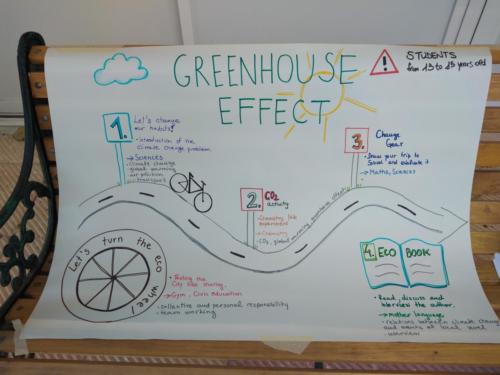 GREENHOUSE
EFFECT
STUDENTS
from 13 to 15 years old
1.
Let's change
our habits!
• Introduction of the
climate change problem
→ Sciences
• climate change
• global warming
• air pollution
• transport
2.
CO2
activity
• Chemistry lab
experiment
→ Chemistry
• CO2, global warming, greenhouse effect
3.
Change
Gear
• Draw your trip to
School and evaluate it
→ Maths, Sciences
4. ECO BOOK
• Read, discuss and
interview the author.
→ Mother language
- relations between climate change
and events at local
- interview
Let's turn the eco wheel
• Riding the
City bike sharing
→ Gym, Civic Education
- collective and personal responsibility
- team working